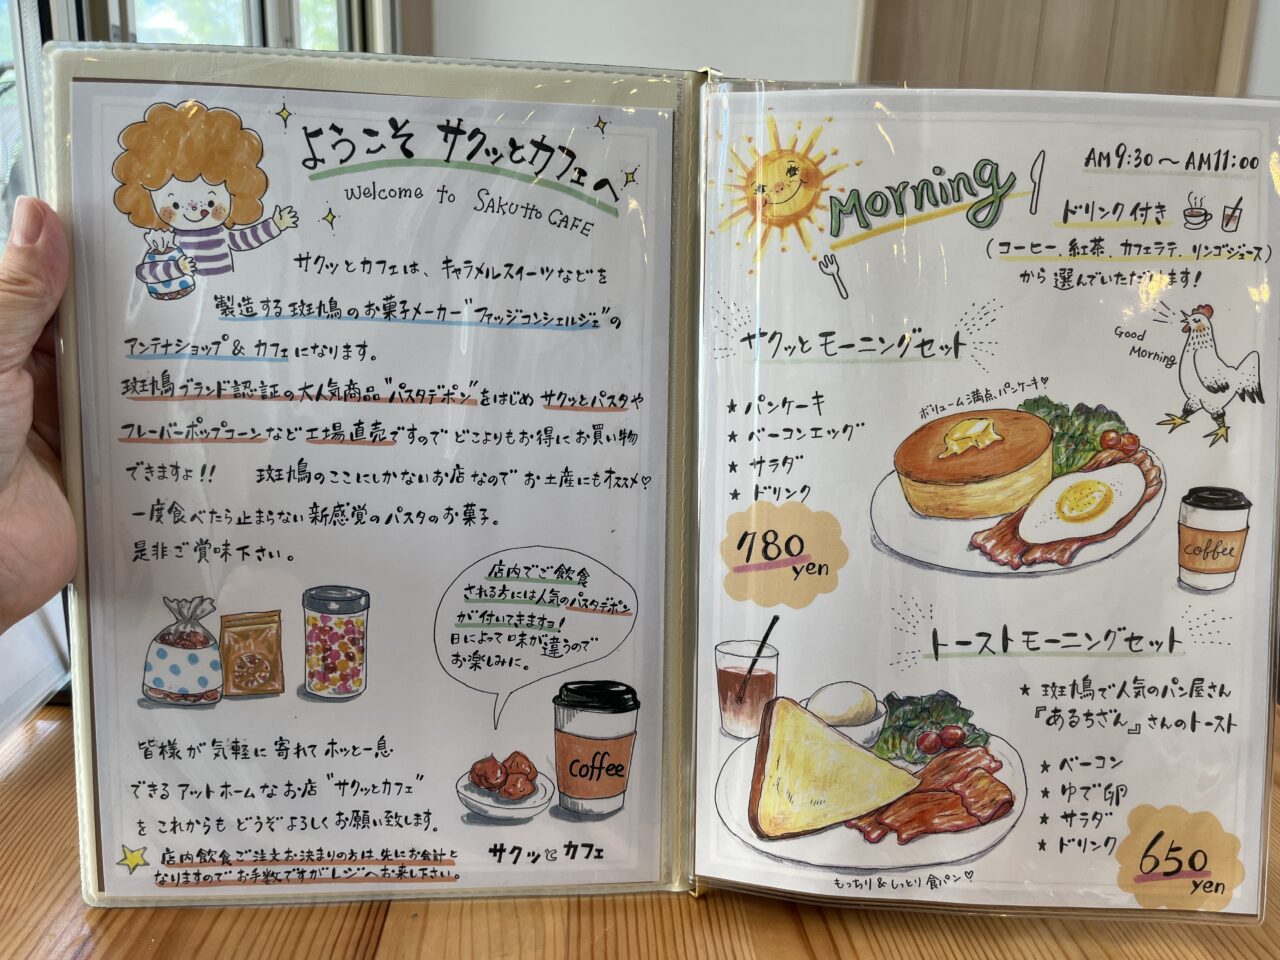 ようこそ サクッとカフェへ
Welcome to SAKUtto CAFE
サクッとカフェは、キャラメルスイーツなどを
製造する斑鳩のお菓子メーカー"ファッジコンシェルジェ"の
アンテナショップ & カフェになります。
斑鳩ブランド認証の大人気商品"パスタデポン"をはじめ サクッとパスタや
フレーバーポップコーンなど工場直売ですのでどこよりもお得にお買い物
できますよ!! 斑鳩のここにしかないお店なので お土産にもオススメ♡
一度食べたら止まらない新感覚のパスタのお菓子。
是非ご賞味下さい。
店内でご飲食
される方には人気のパスタデポン
が付いてきますヨ!
日によって味が違うので
お楽しみに。
Coffee
皆様が気軽に寄れてホッと一息
できるアットホームなお店"サクッとカフェ"
をこれからもどうぞよろしくお願い致します。
サクッとカフェ
店内飲食ご注文お決まりの方は、先にお会計と
なりますのでお手数ですがレジへお来し下さい。
Morning
AM9:30～AM11:00
ドリンク付き
(コーヒー、紅茶、カフェラテ、リンゴジュース)
から選んでいただけます!
Good
Morning
サクッとモーニングセット
★ パンケーキ
★ ベーコンエッグ
★ サラダ
★ ドリンク
780
yen
ボリューム満点パンケーキ♡
coffee
トーストモーニングセット
★ 斑鳩で人気のパン屋さん
『あるちざん』さんのトースト
★ ベーコン
★ ゆで卵
★ サラダ
★ ドリンク
650
yen
もっちり&しっとり食パン♡